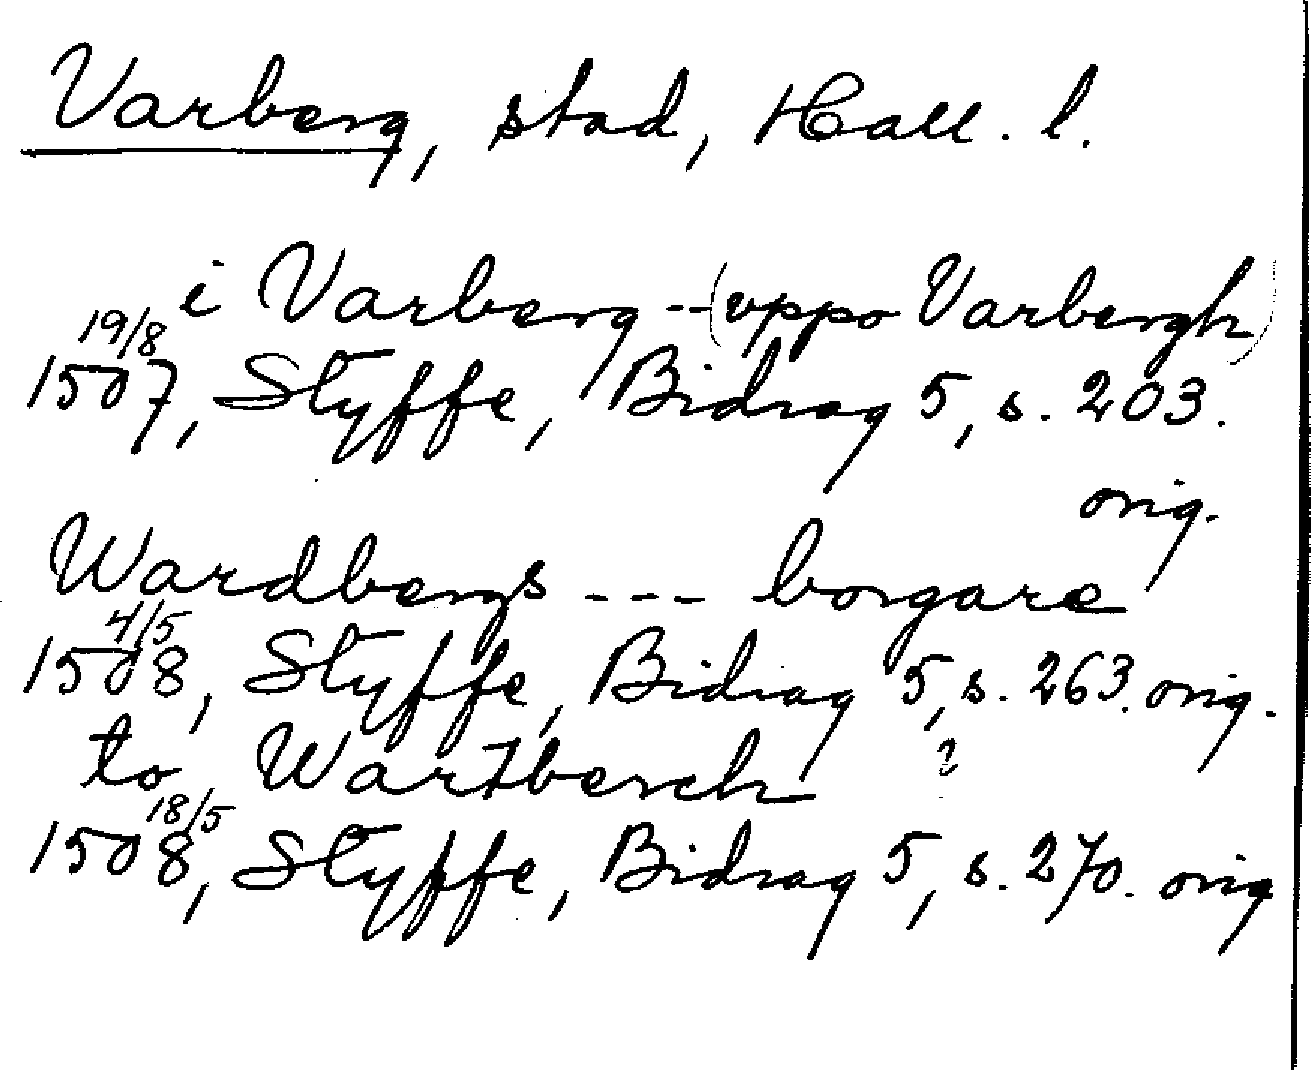 Varberg, stad, Hall. l.
i Varberg --(vppo Varbergh)
19/8
1507, Styffe, Bidrag 5, s. 203.
orig.
Wardbergs --- borgare
4/5
1508, Styffe, Bidrag 5, s. 263. orig.
to Wartberch ?
18/5
1508, Styffe, Bidrag 5, s. 270. orig